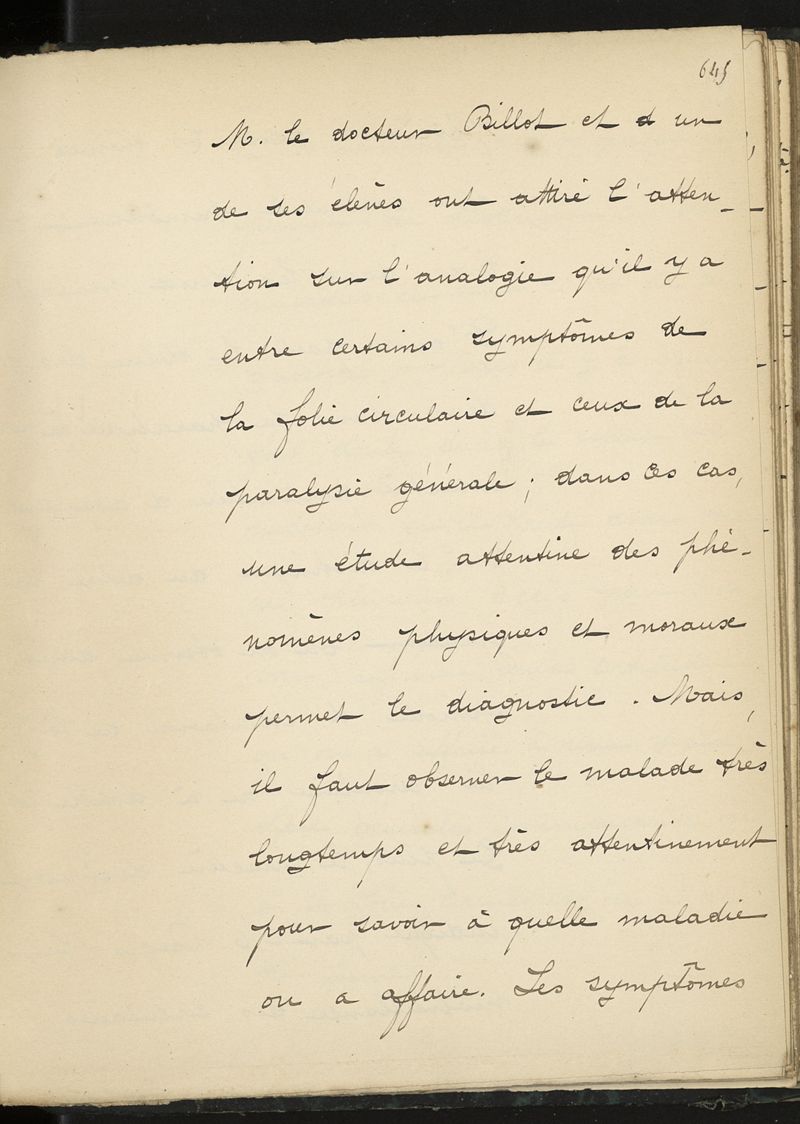 645
M. le docteur Billot et d un
de ses élèves ont attiré l'atten-
tion sur l'analogie qu'il y a
entre certains symptômes de
la folie circulaire et ceux de la
paralysie générale ; dans ces cas,
une étude attentive des phé-
nomènes physiques et moraux
permet le diagnostic . Mais,
il faut observer le malade très
longtemps et très attentivement
pour savoir à quelle maladie
on a affaire. Les symptômes